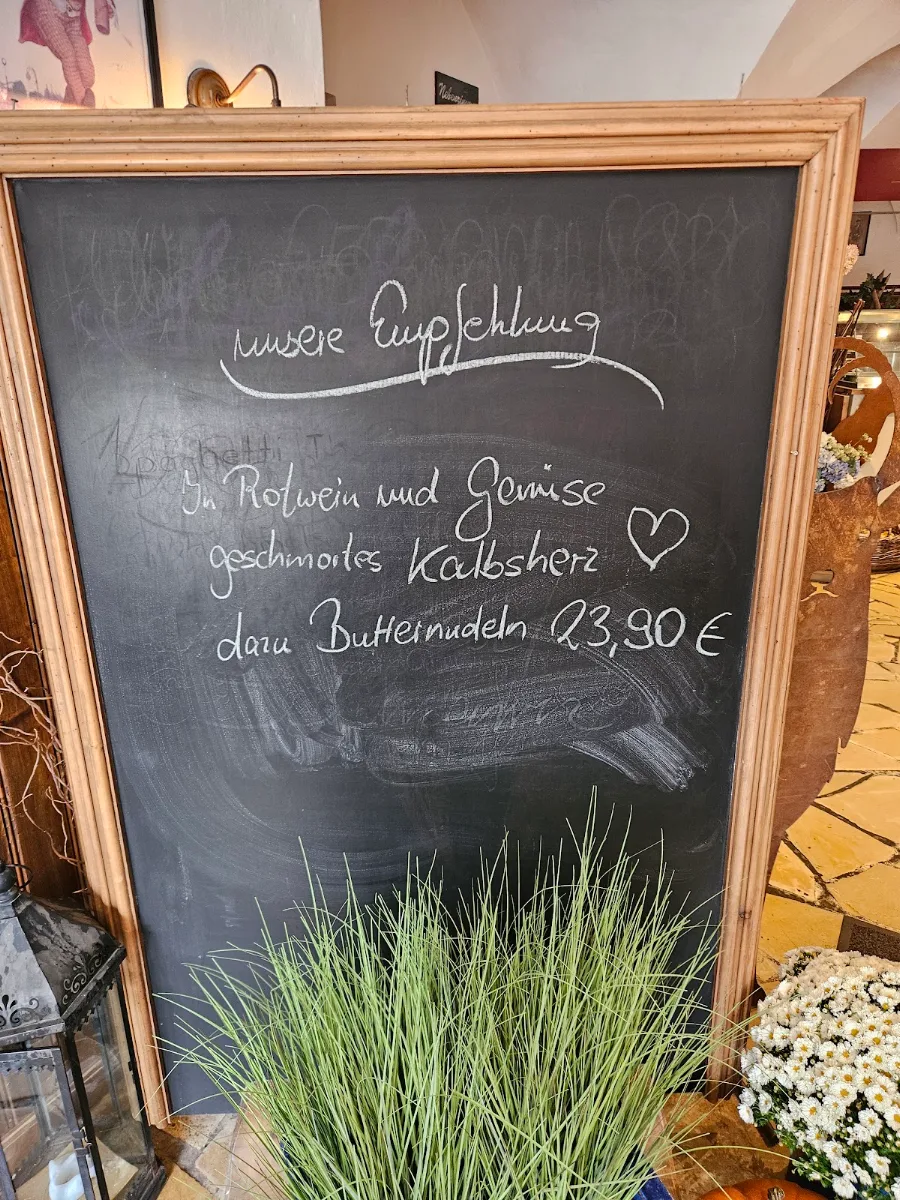 unsere Empfehlung
Spaghetti
In Rotwein und Gemüse
geschmortes Kalbsherz ♡
dazu Butternudeln 23,90 €